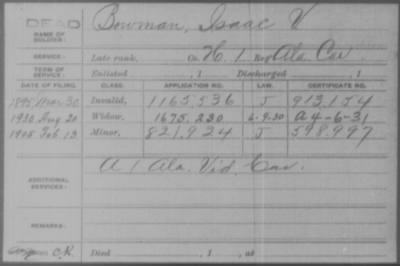 DEAD
NAME OF SOLDIER: Bowman, Isaac V
SERVICE: Late rank, Co. H, 1 Reg't Ala Cav
TERM OF SERVICE: Enlisted , 1 Discharged , 1
DATE OF FILING. CLASS. APPLICATION NO. LAW. CERTIFICATE NO.
1895 Mar. 30 Invalid, 1165,536 J 913,154
1930 Aug 20 Widow, 1675,220 6-9-30 A4-6-31
1908 Feb 13 Minor, 821,924 J 598,997
ADDITIONAL SERVICES: A 1 Ala. Vid. Cav.
REMARKS:
C.R. Died , 1 , at